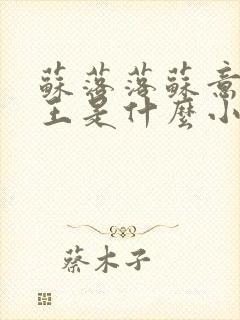 蘇落落蘇意
王是什麼小
蔡木子